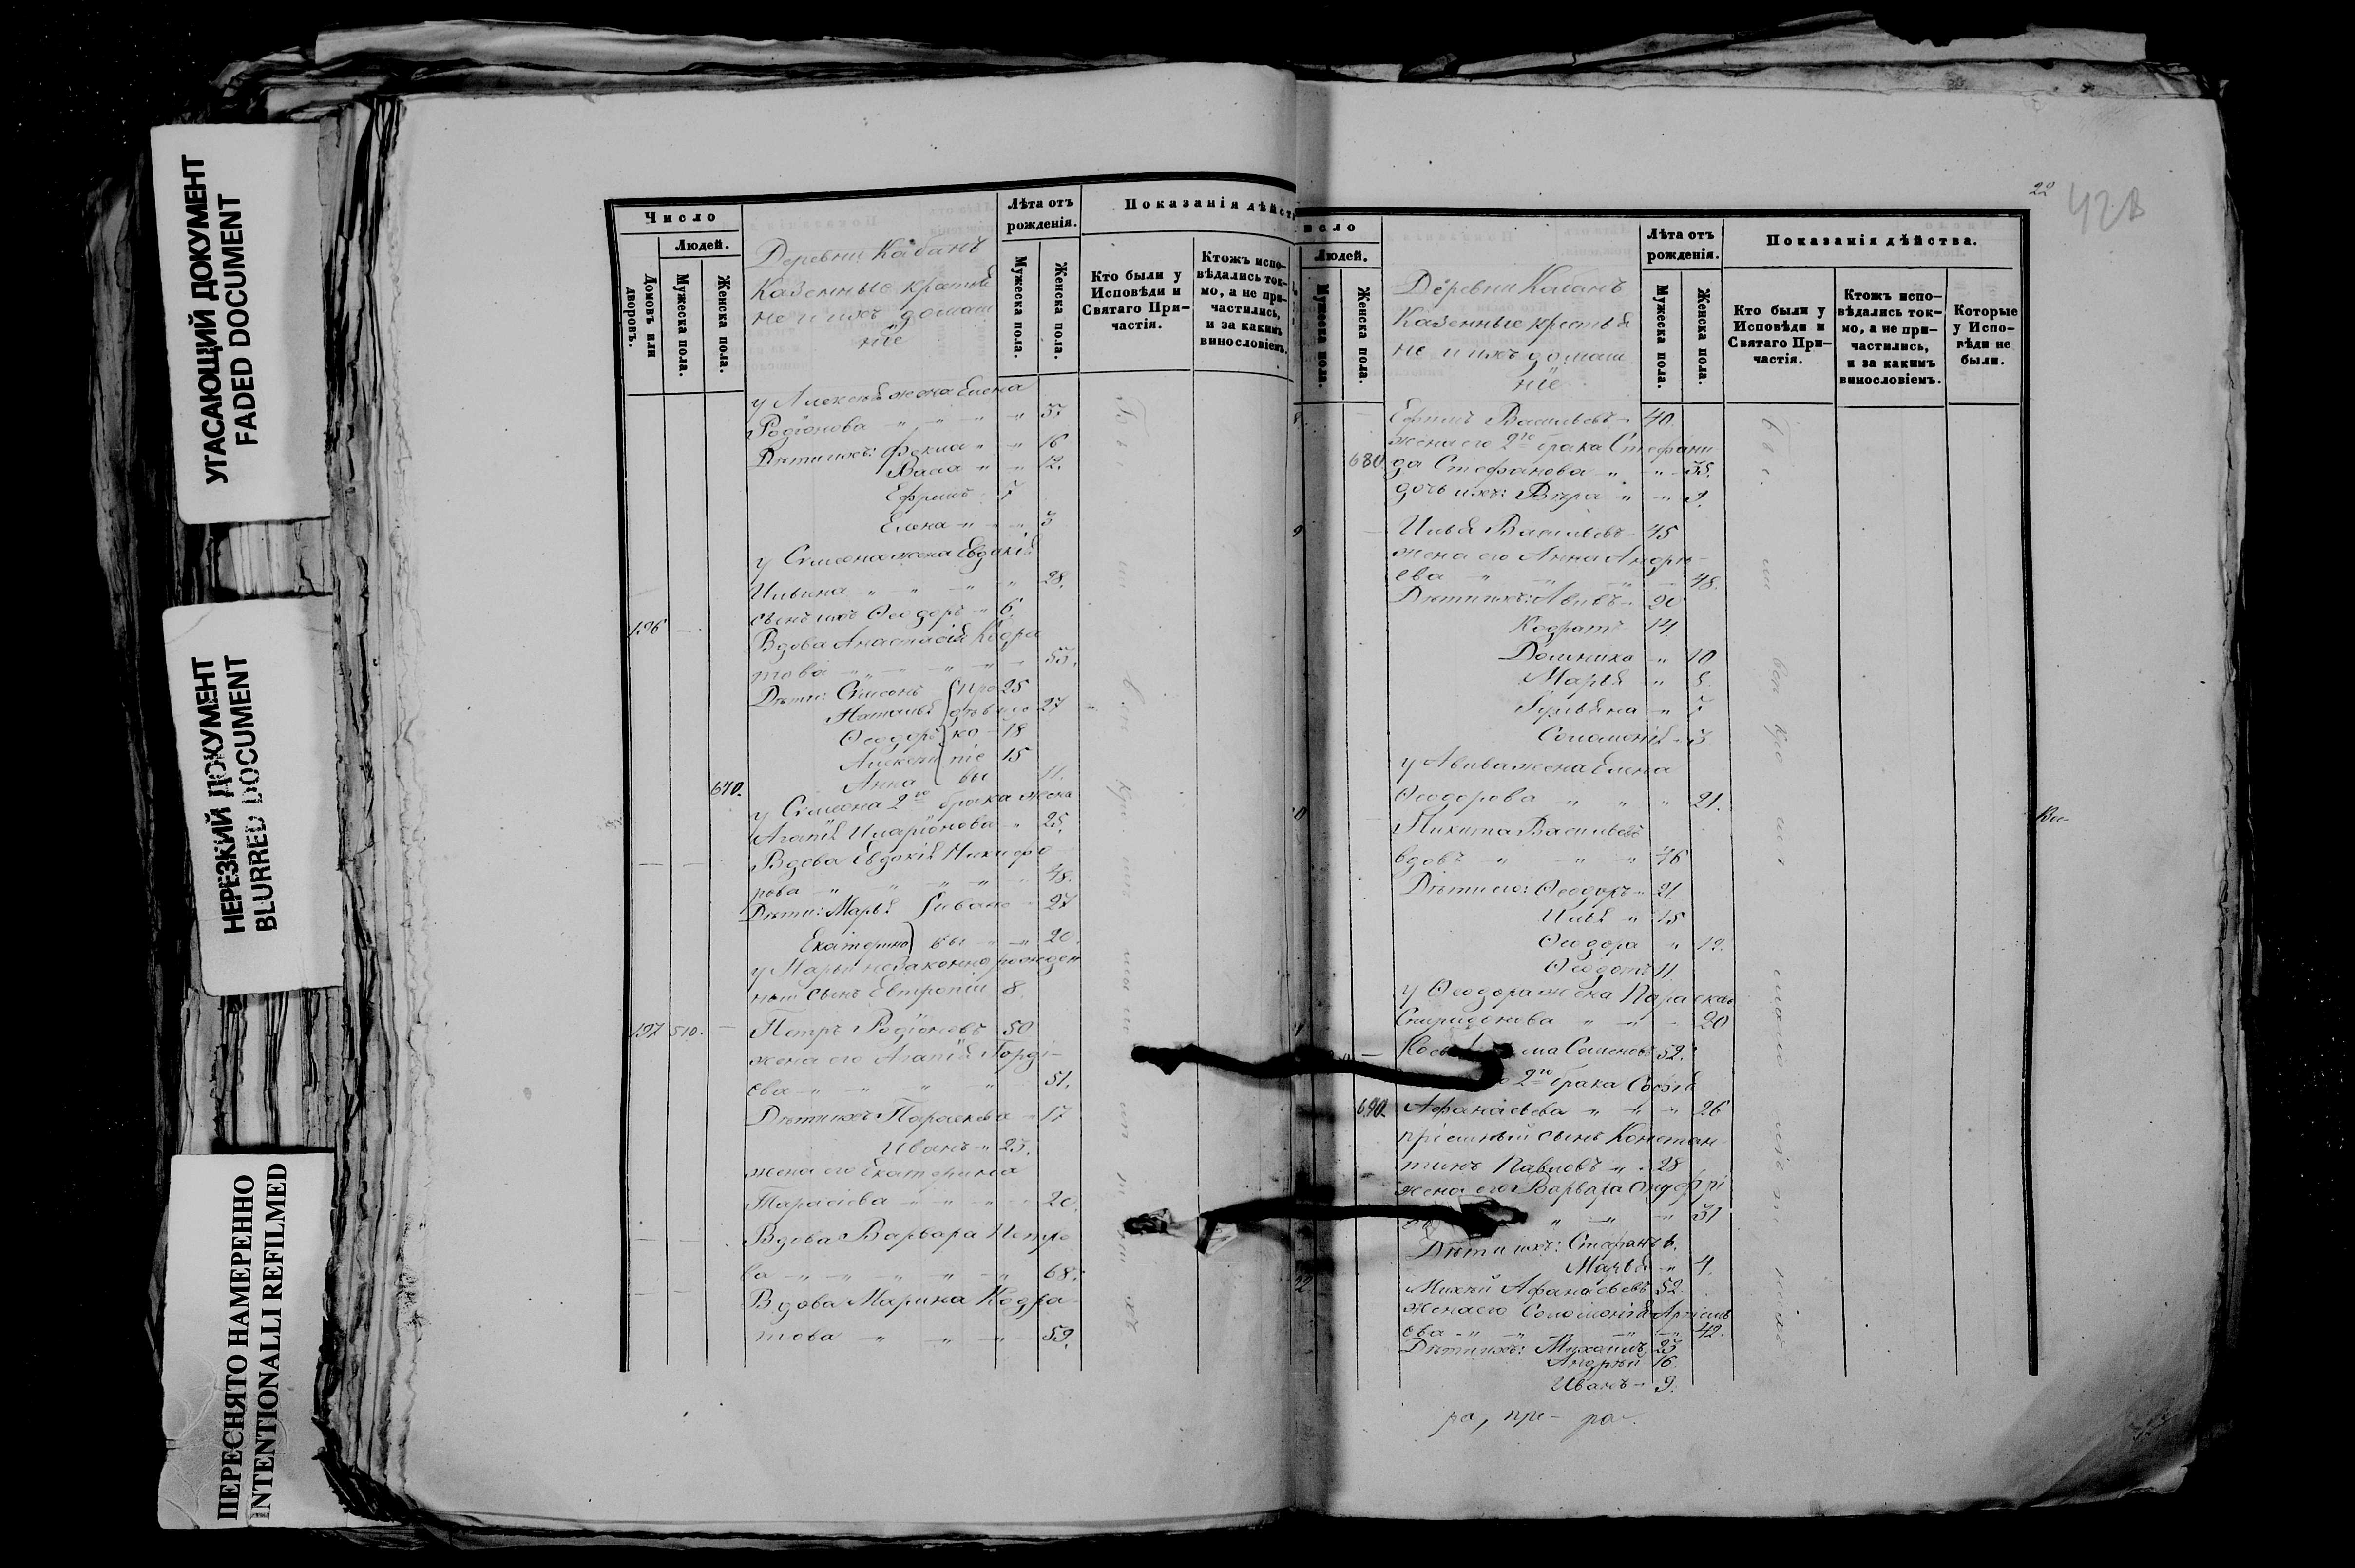 УГАСАЮЩИЙ ДОКУМЕНТ
FADED DOCUMENT
НЕРЕЗКИЙ ДОКУМЕНТ
BLURRED DOCUMENT
ПЕРЕСНЯТО НАМЕРЕННО
INTENTIONALLI REFILMED
Число
Людей.
Домовъ или дворовъ.
Мужеска пола.
Женска пола.
Деревни Кабанъ
Казенные крестья
не и ихъ домаш
ніе
Лѣта отъ рожденія.
Мужеска пола.
Женска пола.
Показанія дѣйст
Кто были у Исповѣди и Святаго При-частія.
Ктожъ испо-вѣдались ток-мо, а не при-частились, и за какимъ винословіемъ.
у Алексѣя жена Елена
Родіонова
Дѣти ихъ: Фекла 16
Васса 12.
Ефремъ 7
Елена 3
у Симеона жена Евдокія
Ильина 28.
сынъ ихъ Ѳеодоръ 6.
196 Вдова Анастасія Кодра
това 55.
Дѣти: Симеонъ 25
Наталья 27
Ѳеодоръ 18
Алексѣй 15
670. Анна 11.
у Симеона 2го брака жена
Агапія Иларіонова 25.
Вдова Евдокія Никифо
рова 48.
Дѣти: Марья Ивано 27
Екатерина вы 20.
у Марьи незаконнорожден
ный сынъ Евтропій 8.
197 510. Петръ Родіоновъ 50
жена его Агапія Горді-
ева 51.
Дѣти ихъ Параскева 17
Иванъ 25.
жена его Екатерина
Тарасіева 20.
Вдова Варвара Петро
ва 68.
Вдова Марина Кодра
това 59.
22
42В
исло
Людей.
Мужеска пола.
Женска пола.
Деревни Кабанъ
Казенные крестья
не и ихъ домаш
ніе
Лѣта отъ рожденія.
Мужеска пола.
Женска пола.
Показанія дѣйства.
Кто были у Исповѣди и Святаго При-частія.
Ктожъ испо-вѣдались ток-мо, а не при-частились, и за какимъ винословіемъ.
Которые у Испо-вѣди не были.
Ефимъ Васильевъ 40.
жена его 2го брака Стефани
680. да Стефанова 35.
дочь ихъ: Вѣра 9.
Илья Васильевъ 45
жена его Анна Андре-
ева 48.
Дѣти ихъ: Авивъ 20
Кодратъ 14.
Домника 10
Марья 8.
Гульяна 7
Соломонія 3
у Авива жена Елена
Ѳеодорова 21.
Никита Васильевъ
вдовъ 46
Дѣти его: Ѳеодоръ 21.
Илья 15
Ѳеодора 12.
Ѳеодотъ 11.
у Ѳеодора жена Параскева
Спиридонова 20
ма Семеновъ 52.
2го брака Софія
690. Афанасьева 26
пріемный сынъ Констан
тинъ Павловъ 28
жена его Варвара Онуфрі
31
Дѣти ихъ: Стефанъ 6.
Марья 4.
Михей Афанасьевъ 52.
жена его Соломонія Артемь
ева 42.
Дѣти ихъ: Михаилъ 23
Андрей 16.
Иванъ 9.